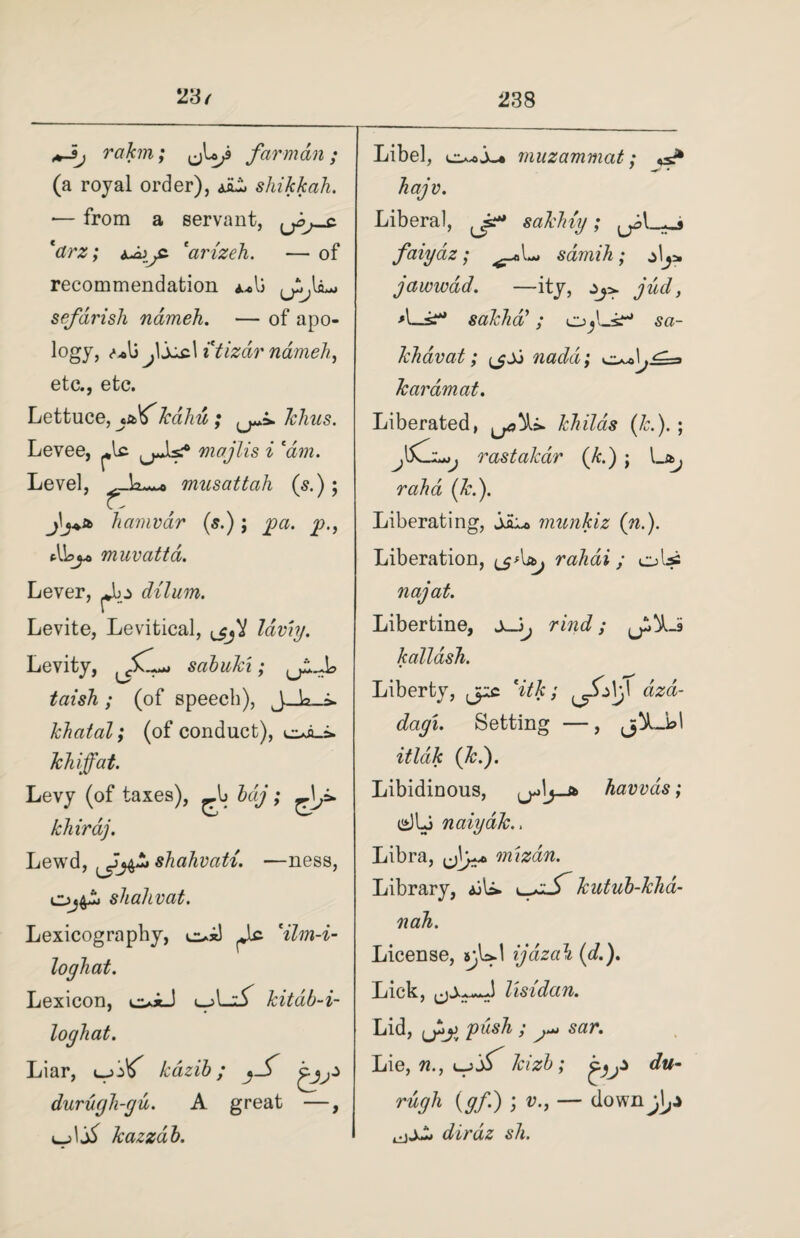 23/
رقم rakm; فرمان farmán;
(a royal order), شقه shikkah.
— from a servant, عرض
'arz; عریضه 'arízeh. — of
recommendation سفارش نامه
sefárish námeh. — of apo-
logy, اعتذار نامه i'tizár námeh,
etc., etc.
Lettuce, كاهو káhú; خس khus.
Levee, مجلس عام majlis i 'ám.
Level, مسطح musattah (s.);
هموار hamvár (s.); pa. p.,
موطاء muvattá.
Lever, دیلم dílum.
Levite, Levitical, لاوی lávíy.
Levity, سبکی sabukí; طیش
taish; (of speech), خطل
khatal; (of conduct), خفت
khiffat.
Levy (of taxes), باج báj; خراج
khiráj.
Lewd, شهوتی shahvatí. —ness,
شهوت shahvat.
Lexicography, علم لغت 'ilm-i-
loghat.
Lexicon, کتاب لغت kitáb-i-
loghat.
Liar, کاذب kázib; دروغ گو
durúgh-gú. A great —,
کذاب kazzáb.
238
Libel, مذمت muzammat; هجو
hajv.
Liberal, سخی sakhíy; فیاض
faiyáz; سامح sámih; جواد
jawwád. —ity, جود júd,
سخاء sakhá’; سخاوت sa-
khávat; ندی nadá; کرامت
karámat.
Liberated, خلاص khilás (k.).;
رستکار rastakár (k.); رها
rahá (k.).
Liberating, منقذ munkiz (n.).
Liberation, رهائی rahái; نجات
najat.
Libertine, رند rind; قلاش
kallásh.
Liberty, عتق 'itk; آزادگی ázá-
dagí. Setting —, اطلاق
itlák (k.).
Libidinous, هواس havvás;
نیاك naiyák..
Libra, میزان mízán.
Library, کتب خانه kutub-khá-
nah.
License, اجازه ijázah (d.).
Lick, لیسیدن lisídan.
Lid, پوش púsh; سر sar.
Lie, n., کذب kizb; دروغ du-
rúgh (gf.); v., — down دراز
شدن diráz sh.